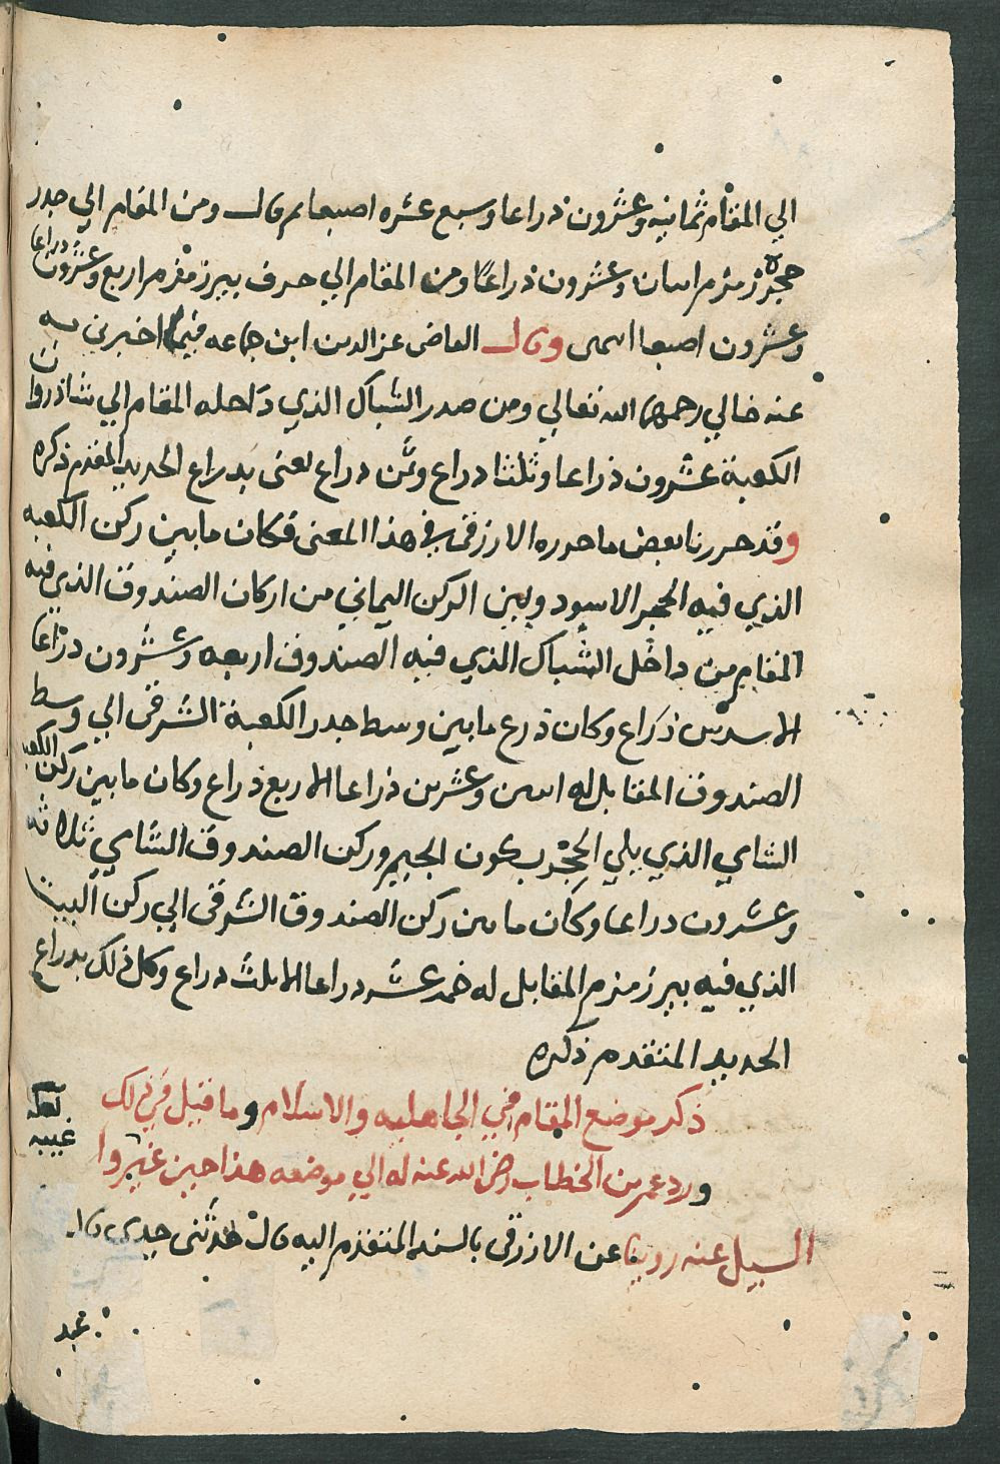 الي المقام ثمانيه وعشرون ذراعا وسبع عشره اصبعا ثم قال ومن المقام الي جدر
حجره زمزم اثنان وعشرون ذراعا ومن المقام الي حرف بير زمزم اربع وعشرون ذراعا
وعشرون اصبعا انتهى وقال القاضى عز الدين ابن جماعه فيما اخبرنى به
عنه خالي رحمهما الله تعالي ومن صدر الشباك الذي داخله المقام الي شاذروان
الكعبة عشرون ذراعا وثلثا ذراع وثمن ذراع يعنى بذراع الحديد المقدم ذكره
وقد حررنا بعض ما حرره الازرقى في هذا المعنى فكان ما بين ركن الكعبه
الذي فيه الحجر الاسود وبين الركن اليماني من اركان الصندوق الذي فيه
المقام من داخل الشباك الذي فيه الصندوق اربعه وعشرون ذراعا
الا سدس ذراع وكان ذرع ما بين وسط جدر الكعبة الشرقى الي وسط
الصندوق المقابل له اثنين وعشرين ذراعا الا ربع ذراع وكان ما بين ركن الكعبه
الشامي الذي يلي الحجر بسكون الجيم وركن الصندوق الشامي ثلاثه
وعشرون ذراعا وكان ما بين ركن الصندوق الشرقى الي ركن البيت
الذي فيه بير زمزم المقابل له خمسه عشر ذراعا الا ثلث ذراع وكل ذلك بذراع
الحديد المتقدم ذكره
ذكر موضع المقام في الجاهليه والاسلام وما قيل في ذلك
ورد عمر بن الخطاب رضى الله عنه له الي موضعه هذا حين غيره
السيل عنه روينا عن الازرقى بالسند المتقدم اليه قال حدثنى جدى قال